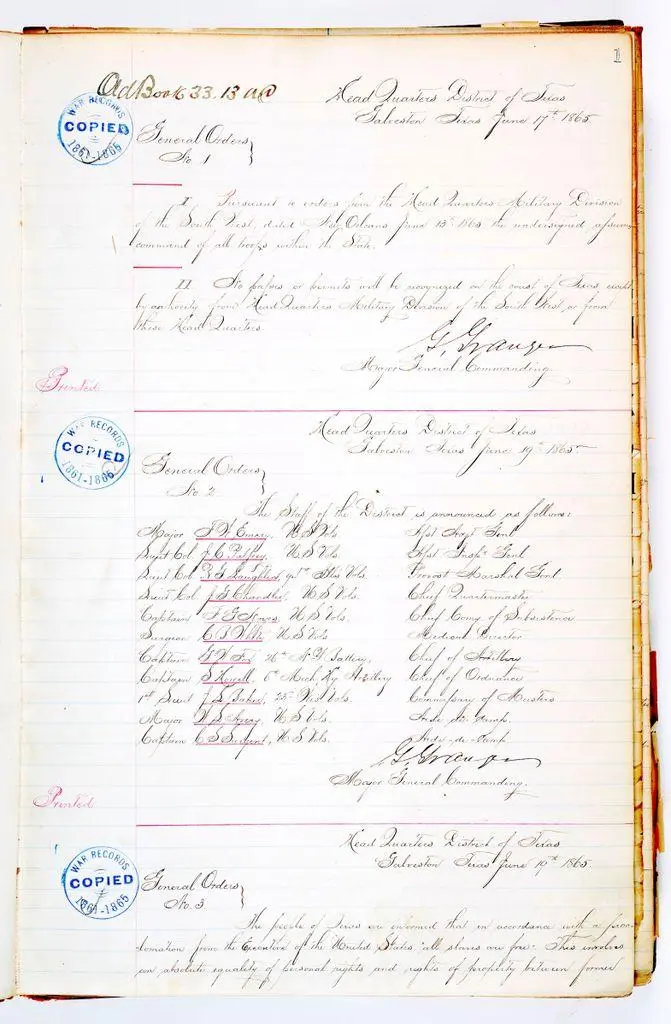 1
Ad Book 33. 13 AC
Head Quarters District of Texas
Galveston Texas June 17th 1865.
WAR RECORDS
COPIED
1861-1865
General Orders
No. 1
I Pursuant to orders from the Head Quarters Military Division
of the South West, dated New Orleans June 13th 1865 the undersigned assumes
command of all troops within the State.
II No passes or permits will be recognized on the coast of Texas, except
by authority from Head Quarters Military Division of the South West or from
these Head Quarters.
G. Granger
Major General Commanding
Printed
Head Quarters District of Texas
Galveston Texas June 19th 1865.
WAR RECORDS
COPIED
1861-1865
General Orders
No 2
The Staff of the District is announced as follows:
Major F W Emery, U S Vols Asst Adjt Genl
Lieut Col J. C. Palfrey, U S Vols Asst Insp. Genl
Lieut Col R G Laughlin, 94th Ills Vols. Provost Marshal Genl
Lieut Col J G Chandler, U S Vols. Chief Quartermaster
Captain U. S. Vols. Chief Comy of Subsistence
Surgeon U S Vols Medical Director
Captain G W Fox, 26th N Y Battery, Chief of Artillery
Captain S Howell, 6th Mich. Hy Artillery Chief of Ordnance
1st Lieut J L Baker, 23d Wis Vols. Commissary of Musters
Major U S Vols. Aide-de-Camp
Captain U S Vols. Aide-de-Camp
G. Granger
Major General Commanding.
Printed
Head Quarters District of Texas
Galveston Texas June 19th 1865.
WAR RECORDS
COPIED
1861-1865
General Orders
No. 3
The people of Texas are informed that in accordance with a proc-
lamation from the Executive of the United States "all slaves are free." This involves
an absolute equality of personal rights and rights of property between former